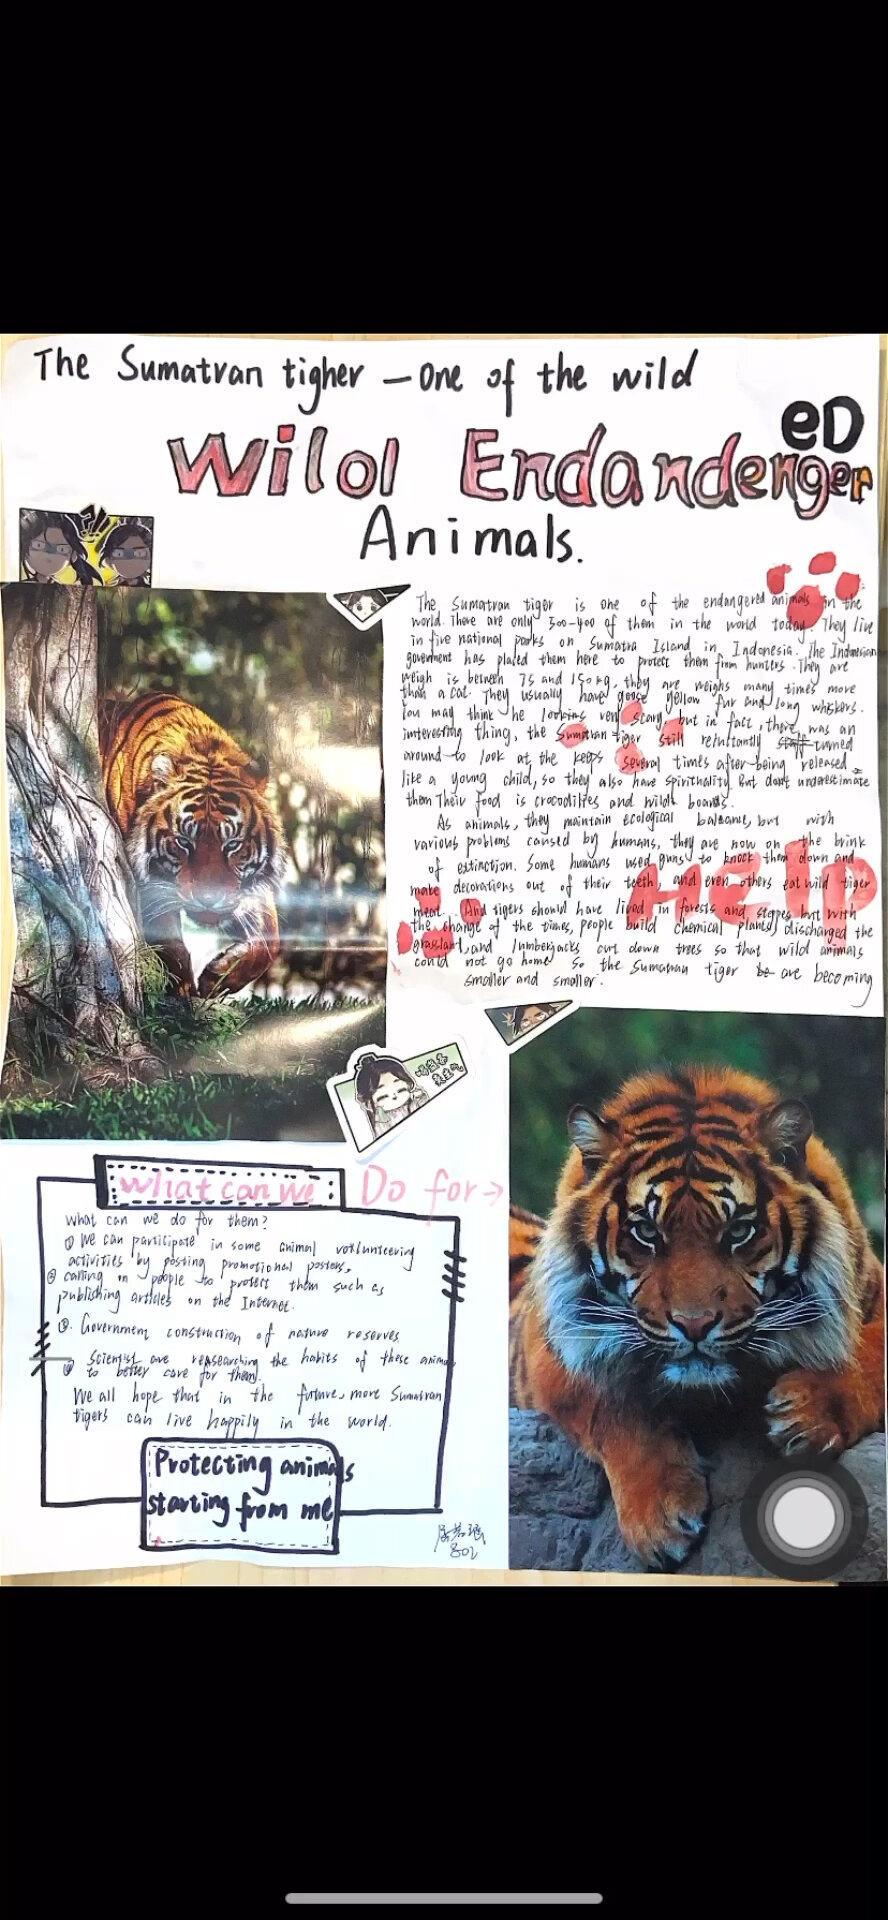 The Sumatran tigher — one of the wild
Wild Endandenger
eD
Animals.
The Sumatran tiger is one of the endangered animals in the
world. There are only 300-400 of them in the world today. They live
in five national parks on Sumatra Island in Indonesia. The Indonesian
government has placed them here to protect them from hunters. They are
weigh is between 75 and 150 kg, they are weighs many times more
than a cat. They usually have goose yellow fur and long whiskers.
You may think he looking very scary, but in fact, there was an
interesting thing, the Sumatran tiger still reluctantly turned
around to look at the keeps several times after being released
like a young child, so they also have spirithality. But don't underestimate
them Their food is crocodilies and wild boards.
As animals, they maintain ecological balcanie, but with
various problems caused by humans, they are now on the brink
of extinction. Some humans used guns to knock them down and
make decorations out of their teeth, and even others eat wild tiger
meat. And tigers should have lived in forests and stepes but with
the change of the times, people build chemical plants, discharged the
grassland, and lumberjacks cut down trees so that wild animals
could not go home. So the Sumatran tiger be are becoming
smaller and smaller.
Help
What can we Do for →
What can we do for them?
① We can participate in some animal voklunteering
activities by posting promotional posters,
② calling on people to protect them such as
publishing articles on the Internet.
③. Government construction of nature reserves
④ Scientist are reasearching the habits of these anima
to better care for them.
We all hope that in the future, more Sumatran
tigers can live happily in the world.
Protecting animals
starting from me
802